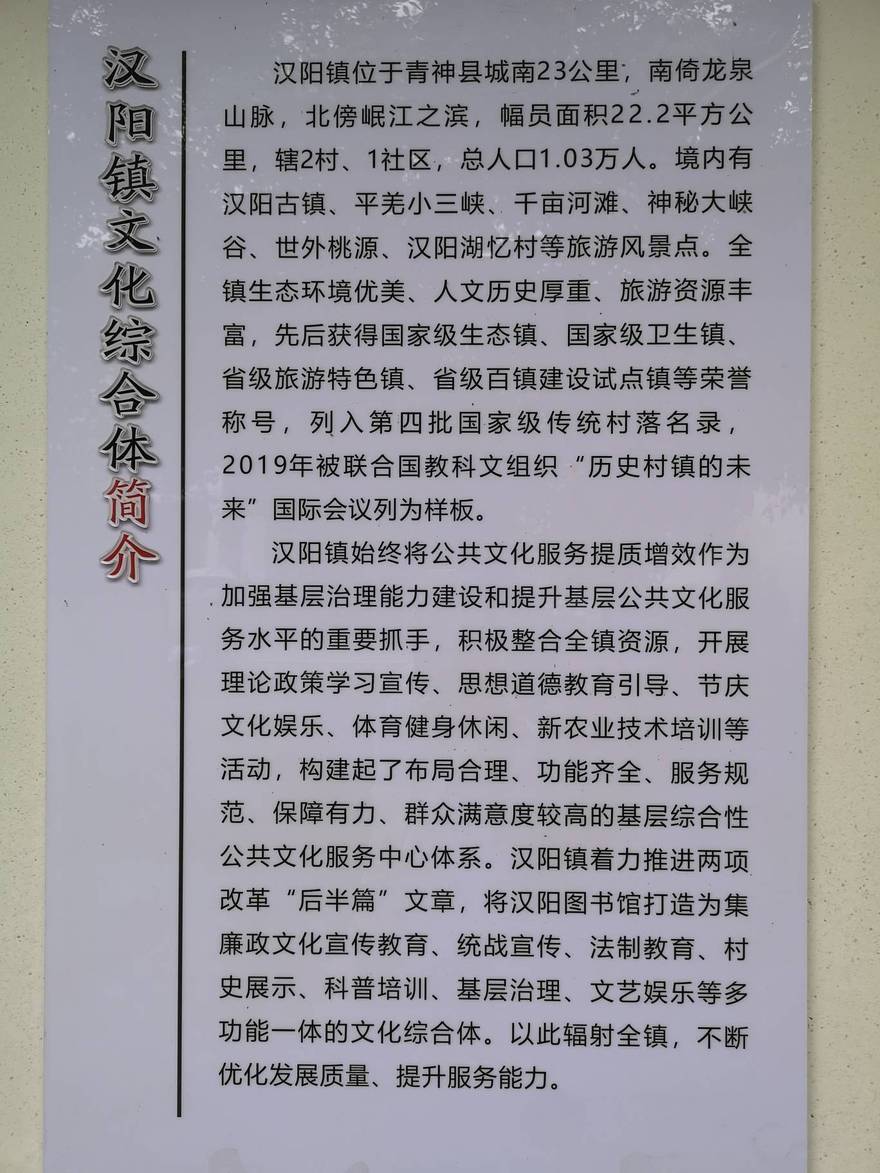 汉阳镇文化综合体简介
汉阳镇位于青神县城南23公里，南倚龙泉
山脉，北傍岷江之滨，幅员面积22.2平方公
里，辖2村、1社区，总人口1.03万人。境内有
汉阳古镇、平羌小三峡、千亩河滩、神秘大峡
谷、世外桃源、汉阳湖忆村等旅游风景点。全
镇生态环境优美、人文历史厚重、旅游资源丰
富，先后获得国家级生态镇、国家级卫生镇、
省级旅游特色镇、省级百镇建设试点镇等荣誉
称号，列入第四批国家级传统村落名录，
2019年被联合国教科文组织“历史村镇的未
来”国际会议列为样板。
汉阳镇始终将公共文化服务提质增效作为
加强基层治理能力建设和提升基层公共文化服
务水平的重要抓手，积极整合全镇资源，开展
理论政策学习宣传、思想道德教育引导、节庆
文化娱乐、体育健身休闲、新农业技术培训等
活动，构建起了布局合理、功能齐全、服务规
范、保障有力、群众满意度较高的基层综合性
公共文化服务中心体系。汉阳镇着力推进两项
改革“后半篇”文章，将汉阳图书馆打造为集
廉政文化宣传教育、统战宣传、法制教育、村
史展示、科普培训、基层治理、文艺娱乐等多
功能一体的文化综合体。以此辐射全镇，不断
优化发展质量、提升服务能力。